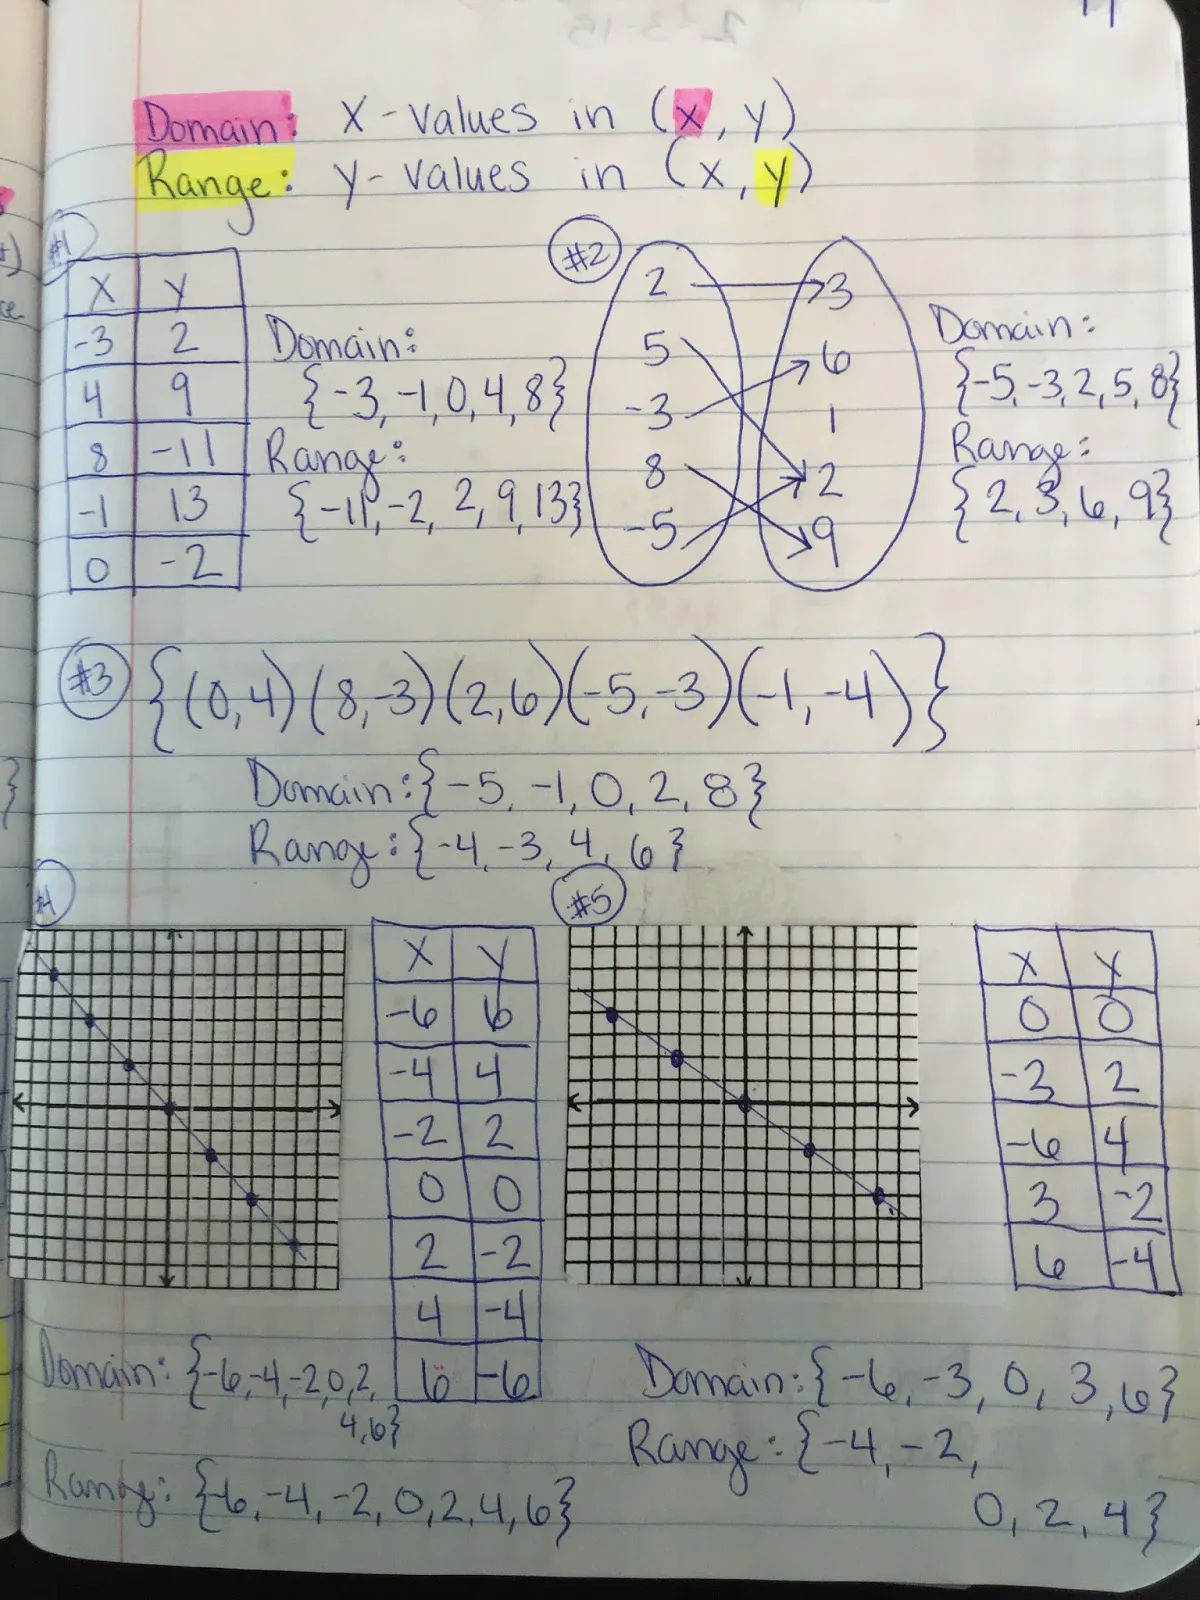 Domain: X-values in (x, y)
Range: y-values in (x, y)
#1
X Y
-3 2
4 9
8 -11
-1 13
0 -2
Domain:
{-3, -1, 0, 4, 8}
Range:
{-11, -2, 2, 9, 13}
#2
2 3
5 6
-3 1
8 2
-5 9
Domain:
{-5, -3, 2, 5, 8}
Range:
{2, 3, 6, 9}
#3 {(0,4) (8,-3) (2,6) (-5,-3) (-1,-4)}
Domain: {-5, -1, 0, 2, 8}
Range: {-4, -3, 4, 6}
#4
X Y
-6 6
-4 4
-2 2
0 0
2 -2
4 -4
6 -6
Domain: {-6, -4, -2, 0, 2,
4, 6}
Range: {-6, -4, -2, 0, 2, 4, 6}
#5
X Y
0 0
-3 2
-6 4
3 -2
6 -4
Domain: {-6, -3, 0, 3, 6}
Range: {-4, -2,
0, 2, 4}